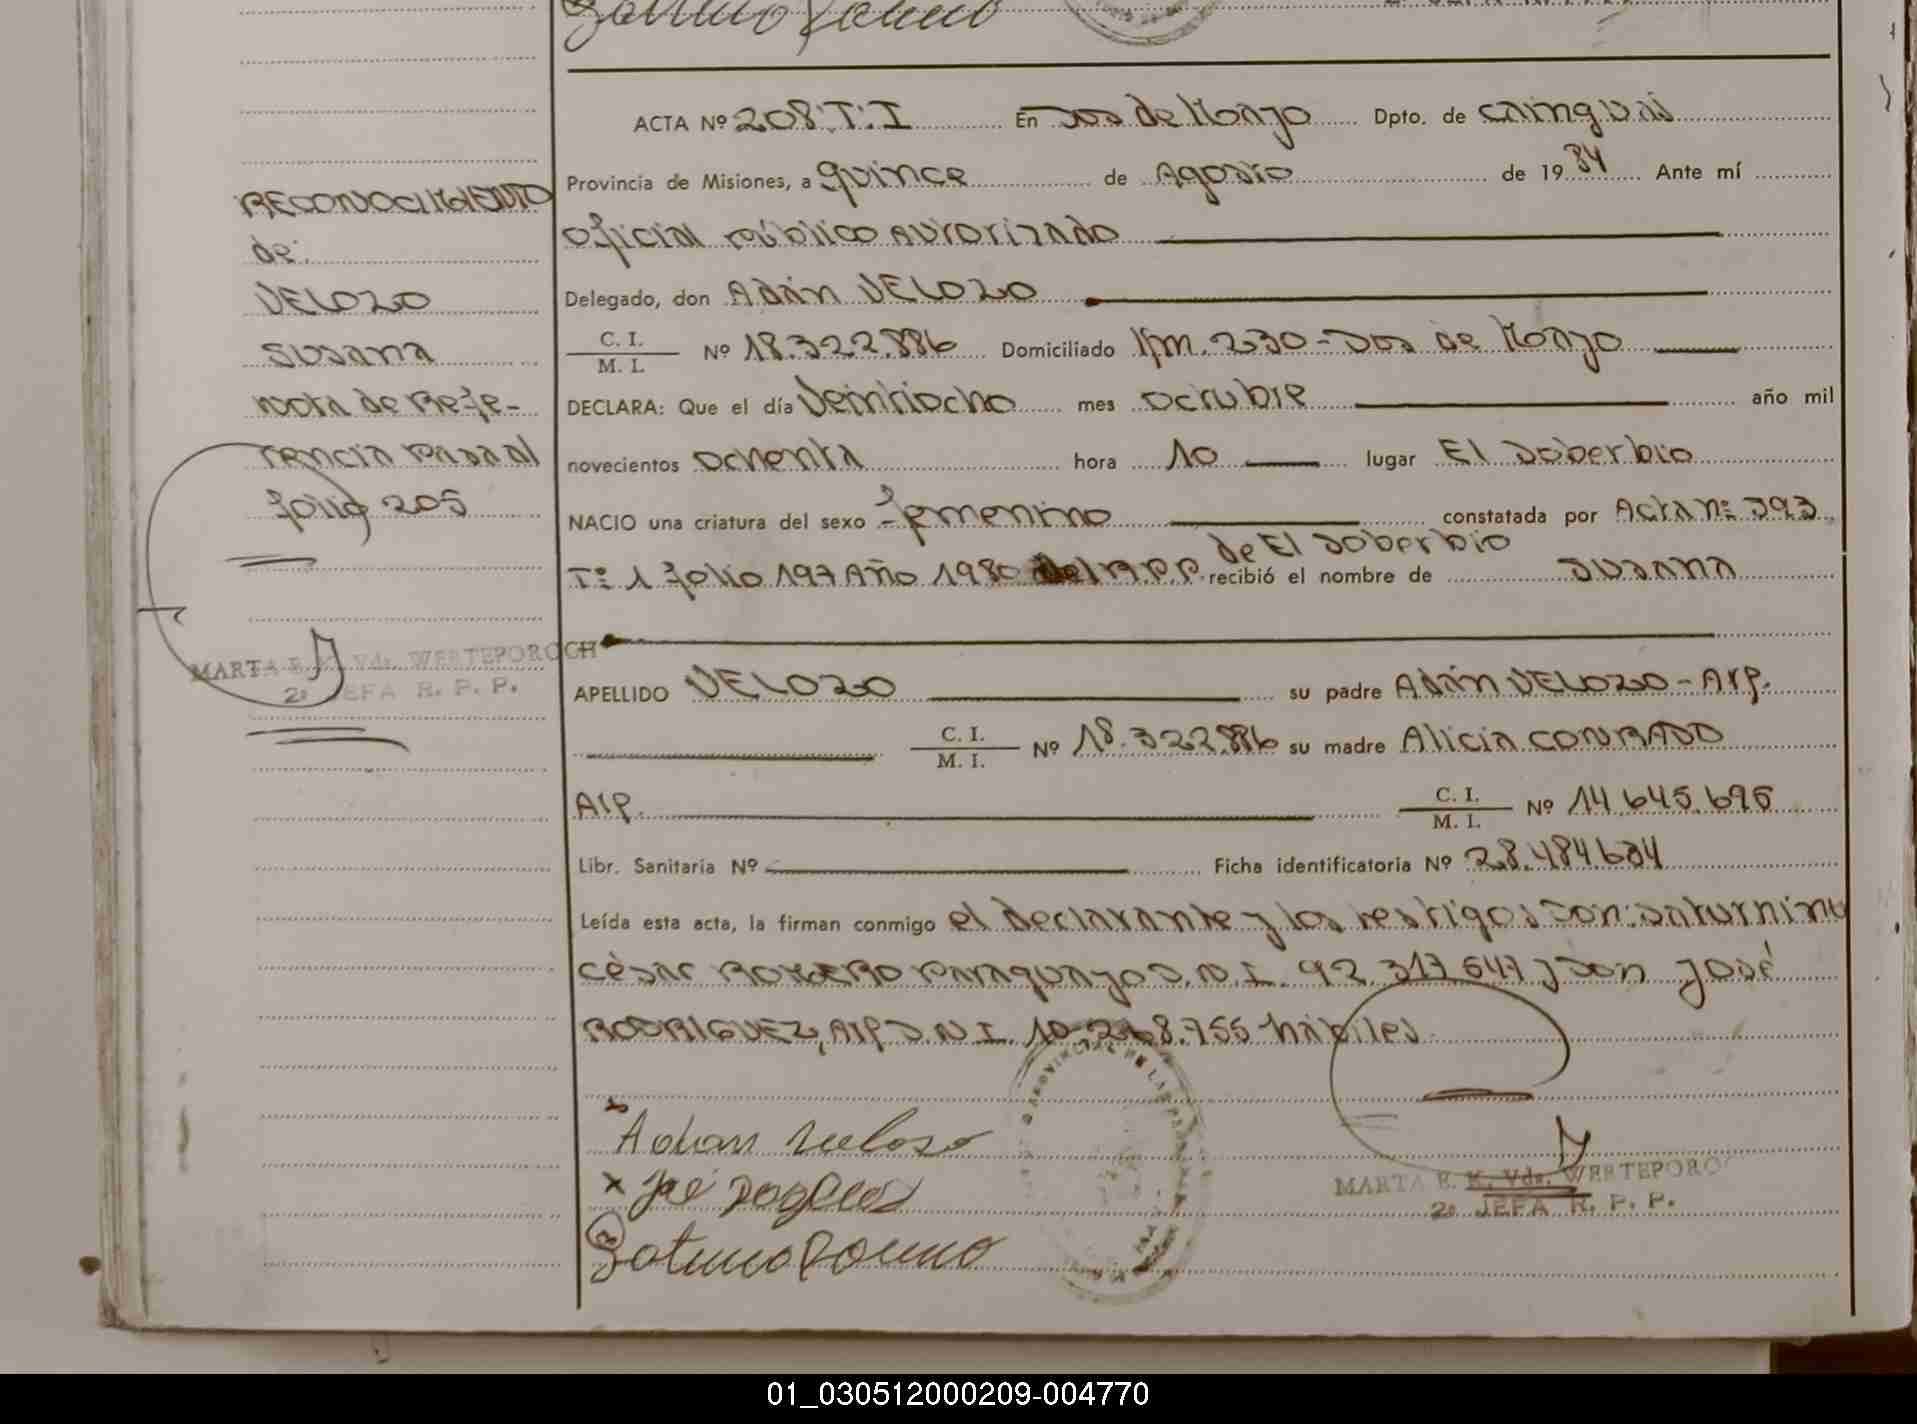 ACTA Nº 208:T:I En Dos de Mayo Dpto. de Cainguás
Provincia de Misiones, a quince de Agosto de 1984 Ante mí
Oficial Público Autorizado
Delegado, don Adán VELOZO
C. I.
M. I. Nº 18.322.886 Domiciliado Km. 230-Dos de Mayo
DECLARA: Que el día Veintiocho mes octubre año mil
novecientos ochenta hora 10 lugar El Soberbio
NACIO una criatura del sexo -femenino constatada por Acta nº 393
de El Soberbio
Tº 1 folio 197 Año 1980 del R.P.P. recibió el nombre de Susana
APELLIDO VELOZO su padre Adán VELOZO-Arg.
C. I.
M. I. Nº 18.322.886 su madre Alicia CONRADO
Arg. C. I.
M. I. Nº 14.645.695
Libr. Sanitaria Nº Ficha identificatoria Nº 28.484634
Leída esta acta, la firman conmigo el declarante y los testigos Don: Saturnino
César ROMERO Paraguayo D.N.I. 92.317.647 y Don José
RODRIGUEZ, Arg D.N.I. 10.268.755 hábiles
Adan Veloso
MARTA E. K. Vda. WERTEPOROCH
2º JEFA R. P. P.
RECONOCIMIENTO
de:
VELOZO
Susana
nota de Refe-
rencia pasa al
folio 205
MARTA E. K. Vda. WERTEPOROCH
2º JEFA R. P. P.
01_030512000209-004770